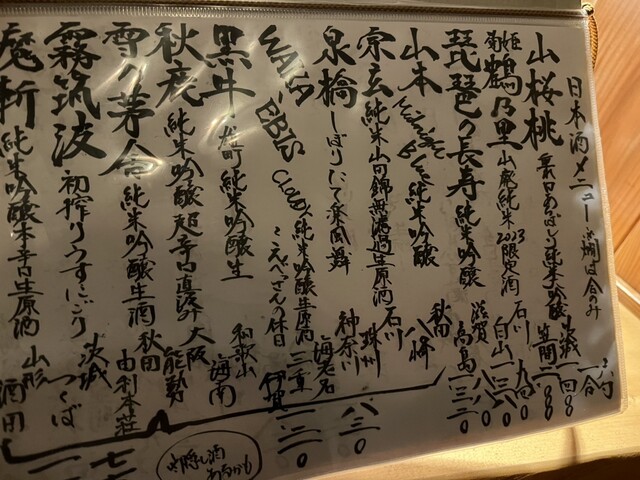 日本酒メニュー お燗は合のみ
二勺 一合
山桜桃 純米吟醸 茨城 笠間 一四〇〇
鶴乃里 山廃純米 2023 限定酒 石川 白山 九四〇
琵琶の長寿 純米吟醸 滋賀 高島 一三二〇
山本 純米吟醸 秋田 八峰
宗玄 純米山田錦無濾過生原酒 石川 珠洲
泉橋 しぼりたて楽風舞 神奈川 海老名 八三〇
WAKA-EBIS Cloudy 純米吟醸生原酒 こえべさんの休日 三重 伊賀 一二二〇
黒牛 雄町純米吟醸生 和歌山 海南
秋鹿 純米吟醸超辛口直汲み 大阪 能勢
雪の茅舎 純米吟醸生酒 秋田 由利本荘
霧筑波 初搾りうすにごり 茨城 つくば
魔斬 純米吟醸本辛口生原酒 山形 酒田
隠し酒あるかも